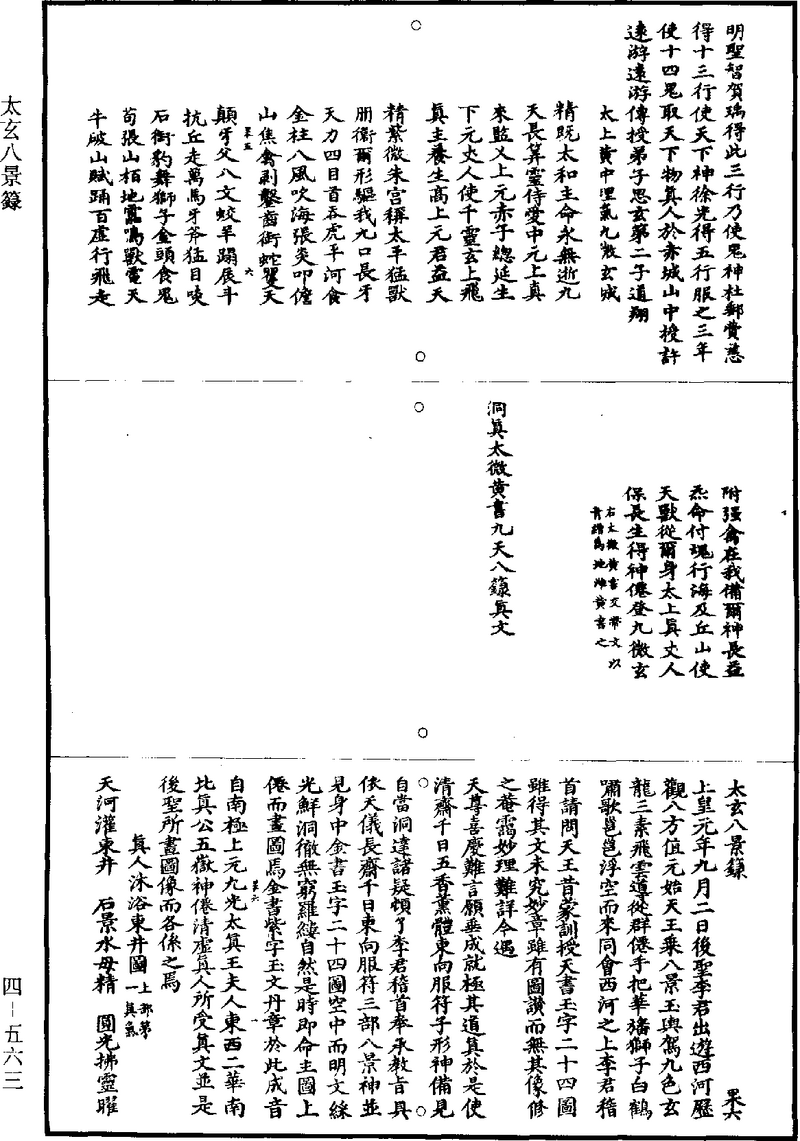 太玄八景籙
四-五六三
明聖智賀瑀得此三行乃使鬼神杜郵費慈
得十三行使天下神徐光得五行服之三年
使十四鬼取天下物真人於赤城山中授許
遠游遠游傳授弟子思玄第二子道翔
太上黃中理氣九微玄城
精既太和生命永無逝九
天長筭靈侍愛中元上真
來監乂上元赤子總延生
下元丈人使千靈玄上飛
真主養生高上元君益天
精紫微朱宮稱太平猛獸
朋衛爾形驅我九口長牙
天力四目首吞虎平河食
金柱八風吹海張炎叩儋
山焦禽剥鑿齒銜蛇瞿天
顛牙父八文蛟羊蹋辰斗
抗丘走萬馬牙斧猛目啖
石銜豹舞獅子金頭食鬼
苟張山栢地靁鳴獸電天
牛破山賦踊百虛行飛走
附强禽在我備爾神長益
炁命付魂行海及丘山使
天獸從爾身太上真丈人
保長生得神僊登九微玄
右太微黃書交帶文以
青繒為地雌黃書之
洞真太微黃書九天八籙真文
太玄八景籙 果六
上皇元年九月二日後聖李君出遊西河歷
觀八方值元始天王乘八景玉輿駕九色玄
龍三素飛雲導從群僊手把華旛獅子白鶴
嘯歌邕邕浮空而來同會西河之上李君稽
首請問天王昔蒙訓授天書玉字二十四圖
雖得其文未究妙章雖有圖讚而無其像修
之菴靄妙理難詳今遇
天尊喜慶難言願垂成就極其道真於是使
清齋千日五香薰體東向服符子形神備見
自當洞達諸疑頓了李君稽首奉承教旨具
依天儀長齋千日東向服符三部八景神並
見身中金書玉字二十四圖空中而明文綵
光鮮洞徹無窮羅縷自然是時即命主圖上
僊而畫圖焉金書紫字玉文丹章於此成音
自南極上元九光太真王夫人東西二華南
北真公五嶽神僊清虛真人所受真文並是
後聖所畫圖像而各係之焉
真人沐浴東井圖 上部第一真氣
天河灌東井 石景水母精 圓光拂靈曜